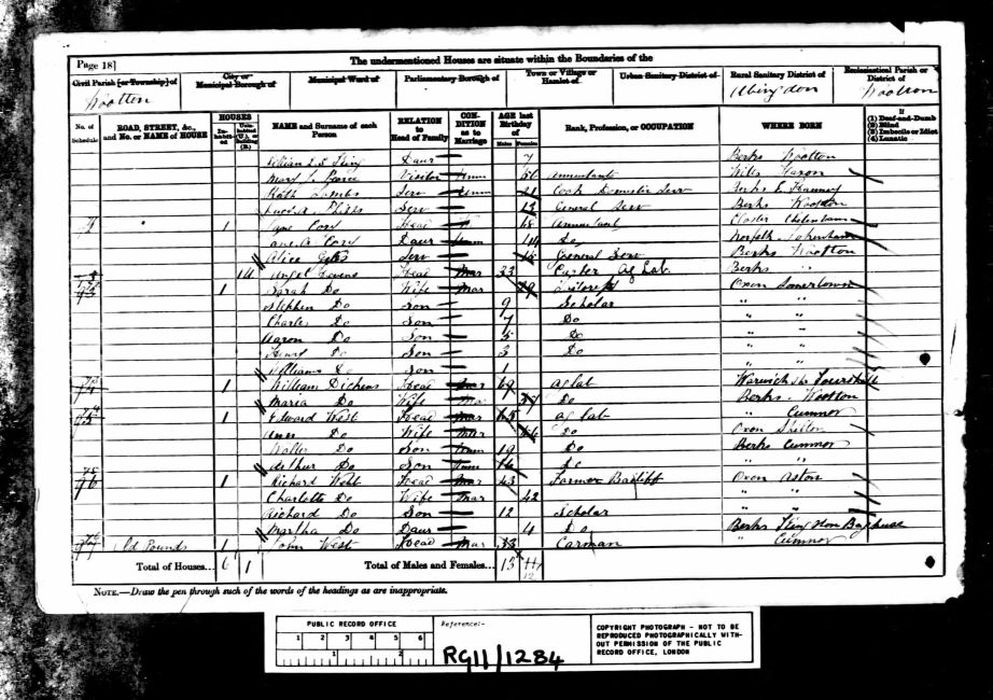 Page 18]
The undermentioned Houses are situate within the Boundaries of the
Civil Parish [or Township] of
City or Municipal Borough of
Municipal Ward of
Parliamentary Borough of
Town or Village or Hamlet of
Urban Sanitary District of
Rural Sanitary District of
Ecclesiastical Parish or District of
Wootton
Abingdon
Wootton
No. of Schedule
ROAD, STREET, &c., and No. or NAME of HOUSE
HOUSES
Inhabited
Uninhabited (U.), or Building (B.)
NAME and Surname of each Person
RELATION to Head of Family
CONDITION as to Marriage
AGE last Birthday of
Males
Females
Rank, Profession, or OCCUPATION
WHERE BORN
If
(1) Deaf-and-Dumb
(2) Blind
(3) Imbecile or Idiot
(4) Lunatic
Daur 7 Berks Wootton
Visitor Unm Annuitant Wilts
Serv Unm 21 Cook Domestic Serv Berks E Hanney
Serv 13 General Serv Berks Wootton
1 Cory Head 68 Annuitant Cheltenham
Cory Daur Unm 44 Do Norfolk
Alice Serv General Serv Berks Wootton
1U Head Mar 33 Ag Lab Berks "
1 Sarah Do Wife Mar Oxon Somertown
Stephen Do Son 9 Scholar " "
Charles Do Son 7 Do " "
Aaron Do Son 5 Do " "
Henry Do Son 3 Do " "
Williams Do Son 1 " "
74 1 William Dickens Head Mar 69 Ag lab Warwick
Maria Do Wife Mar Do Berks Wootton
75 1 Edward West Head Mar 65 Ag lab " Cumnor
Ann Do Wife Mar 66 Do Oxon Shilton
Walter Do Son Unm 19 Do Berks Cumnor
Arthur Do Son Unm 16 Do " "
76 1 Richard Webb Head Mar 43 Farmer Bailiff Oxon Aston
Charlotte Do Wife Mar 42 " "
Richard Do Son 12 Scholar " "
Martha Do Daur 4 Do Berks Kingston Bagpuze
77 Old Pounds 1 John West Head Mar 33 Carman " Cumnor
Total of Houses... 6 1
Total of Males and Females... 13
12
NOTE.—Draw the pen through such of the words of the headings as are inappropriate.
PUBLIC RECORD OFFICE
1 2 3 4 5 6
1 2
Reference:-
RG11/1284
COPYRIGHT PHOTOGRAPH - NOT TO BE
REPRODUCED PHOTOGRAPHICALLY WITH-
OUT PERMISSION OF THE PUBLIC
RECORD OFFICE, LONDON